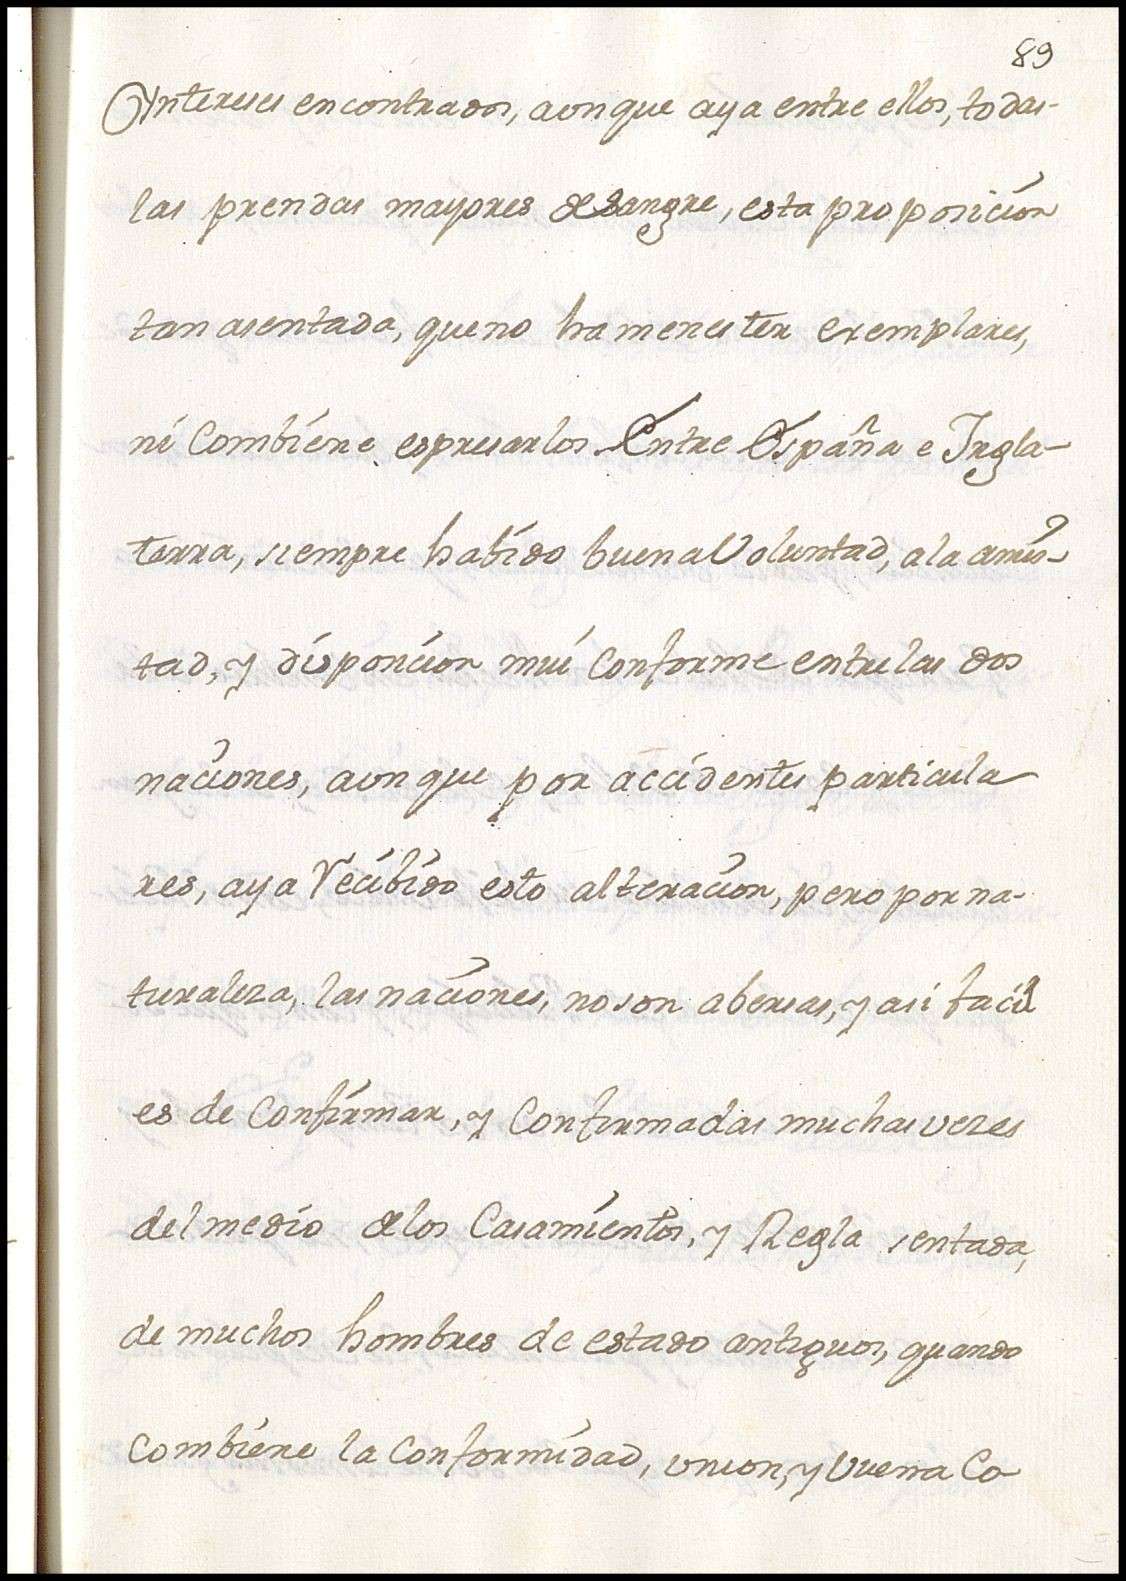 89
Yntereses encontrados, aonque aya entre ellos, todas-
las prendas mayores de sangre, esta proposicion
tan asentada, que no ha menester exemplares,
ni Combiene espresarlos. Entre España e Ingla-
terra, siempre habido buena Voluntad, a la amis-
tad, y disposicion mui Conforme entre las dos
naciones, aonque por accidentes particula
res, aya recibido esto alteracion, pero por na-
turaleza, las naciones, no son abersas, y asi facil
es de Confirmar, y Confirmadas muchas vezes
del medio de los Casamientos, y Regla sentada,
de muchos hombres de estado antiguos, quando
Combiene la Conformidad, union, y buena Co-